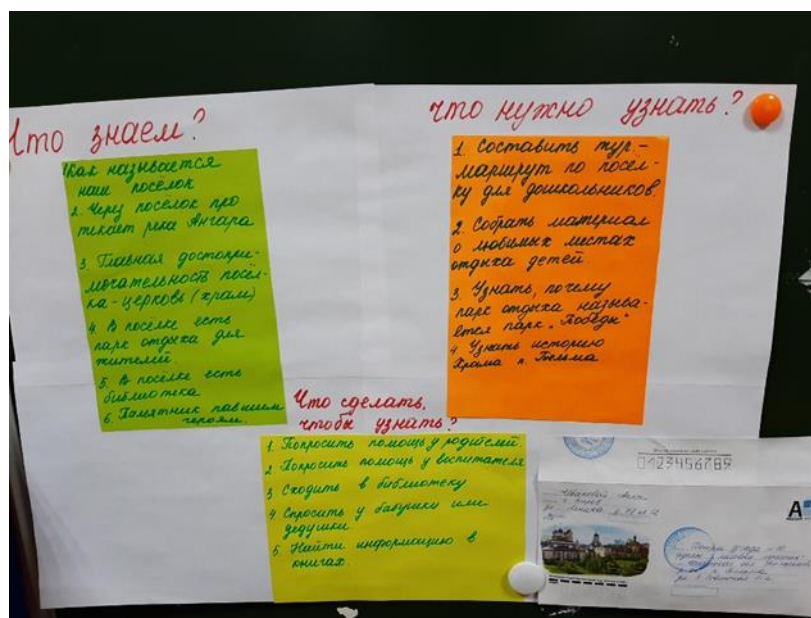 Что знаем?
1. Как называется
наш посёлок
2. Через посёлок про
текает река Ангара
3. Главная достопри-
мечательность посёл-
ка-церковь (храм)
4. В посёлке есть
парк отдыха для
жителей.
5. В посёлке есть
библиотека
6. Памятник павшим
героям.
что нужно узнать?
1. Составить тур.-
маршрут по посёл-
ку для дошкольников.
2. Собрать материал
о любимых местах
отдыха детей.
3. Узнать, почему
парк отдыха называ-
ется парк „Победы"
4 Узнать историю
Храма п. Тельма
Что сделать,
чтобы узнать?
1. Попросить помощь у родителей
2 Попросить помощь у воспитателя
3 Сходить в библиотеку
4 Спросить у бабушки или
дедушки.
5. Найти информацию в
книгах.
0123456789
А